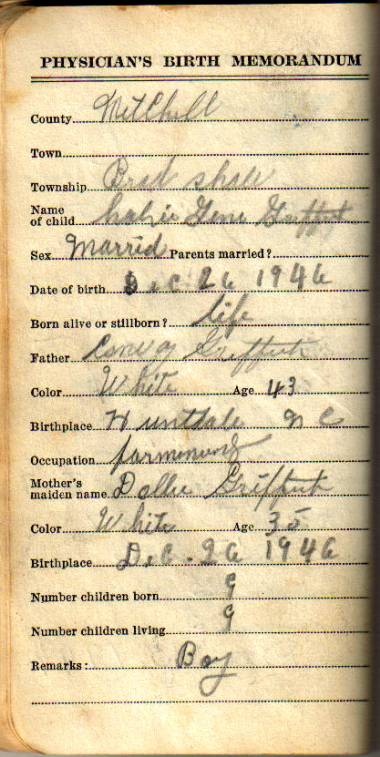 PHYSICIAN'S BIRTH MEMORANDUM
County Mitchell
Town
Township Brad shaw
Name
of child Gene
Sex Married Parents married?
Date of birth Dec 26 1946
Born alive or stillborn? life
Father
Color White Age 43
Birthplace Huntdale N C
Occupation
Mother's
maiden name Dollie
Color White Age 35
Birthplace Dec. 26 1946
Number children born 9
Number children living 9
Remarks: Boy